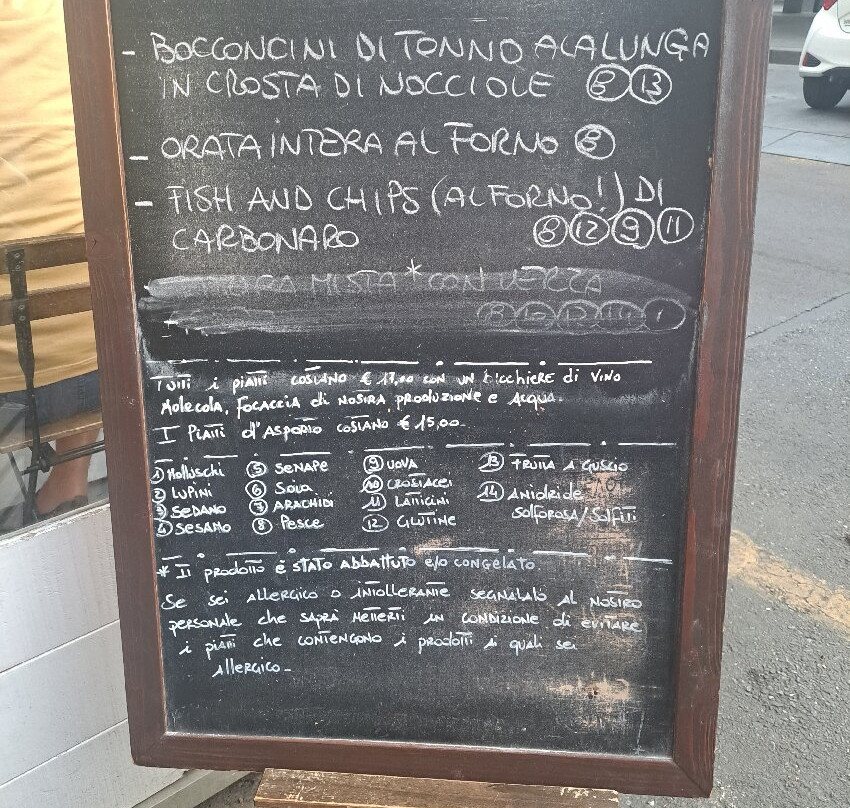 - BOCCONCINI DI TONNO ALALUNGA
IN CROSTA DI NOCCIOLE 8 13
- ORATA INTERA AL FORNO 8
- FISH AND CHIPS (AL FORNO!) DI
CARBONARO 8 12 9 11
MISTA * CON VERZA
Tutti i piatti costano € 17,00 con un bicchiere di vino
Molecola, focaccia di nostra produzione e acqua.
I Piatti d'asporto costano € 15,00.
1 Molluschi 5 SENAPE 9 UOVA 13 FRUTTA A GUSCIO
2 LUPINI 6 Soia 10 CROSTACEI 14 Anidride
3 SEDANO 7 ARACHIDI 11 LATTICINI SOLFOROSA/SOLFITI
4 SESAMO 8 Pesce 12 GLUTINE
* Il prodotto è stato abbattuto e/o congelato.
Se sei allergico o intollerante segnalalo al nostro
personale che saprà metterti in condizione di evitare
i piatti che contengono i prodotti ai quali sei
allergico -